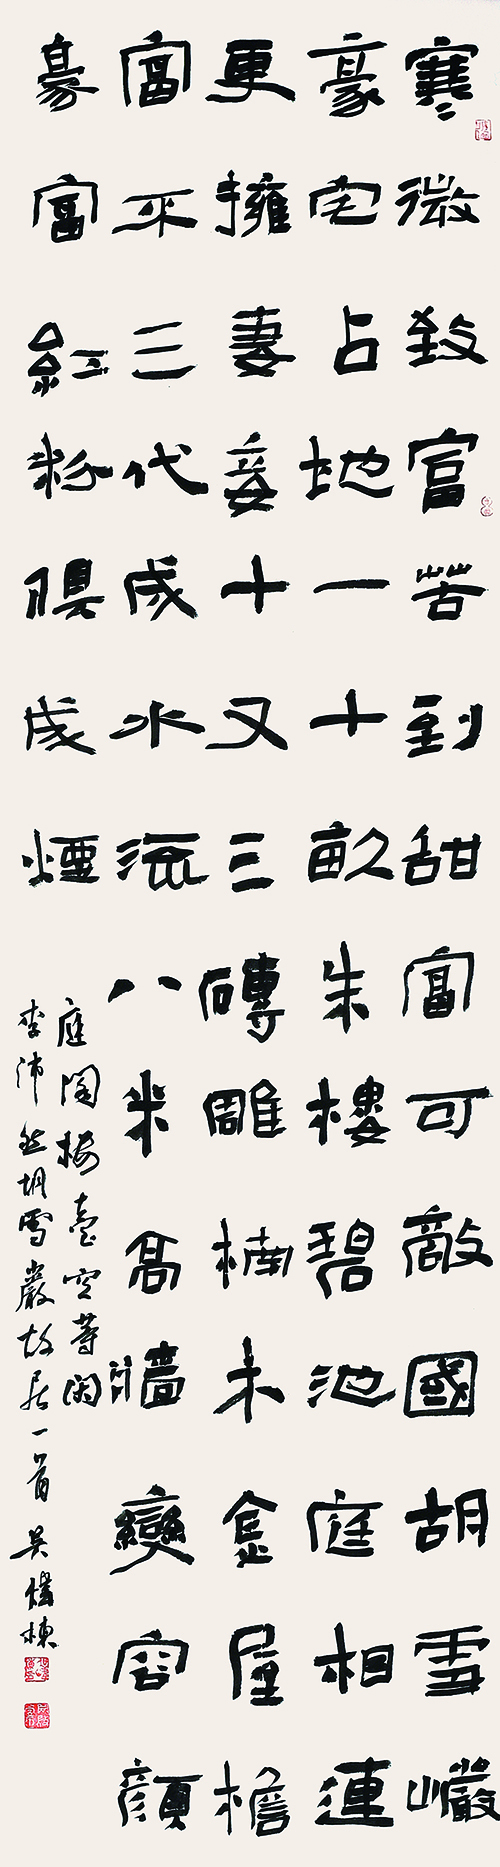 寒微致富苦到甜富可敵國胡雪巖
豪宅占地一十畝朱樓碧池庭相連
更擁妻妾十又三磚雕楠木金屋檐
富不三代成水流八米高牆變容顏
豪富紅粉俱成煙
庭閣樓臺空等閑
李沛然胡雪巖故居一首 吳棟